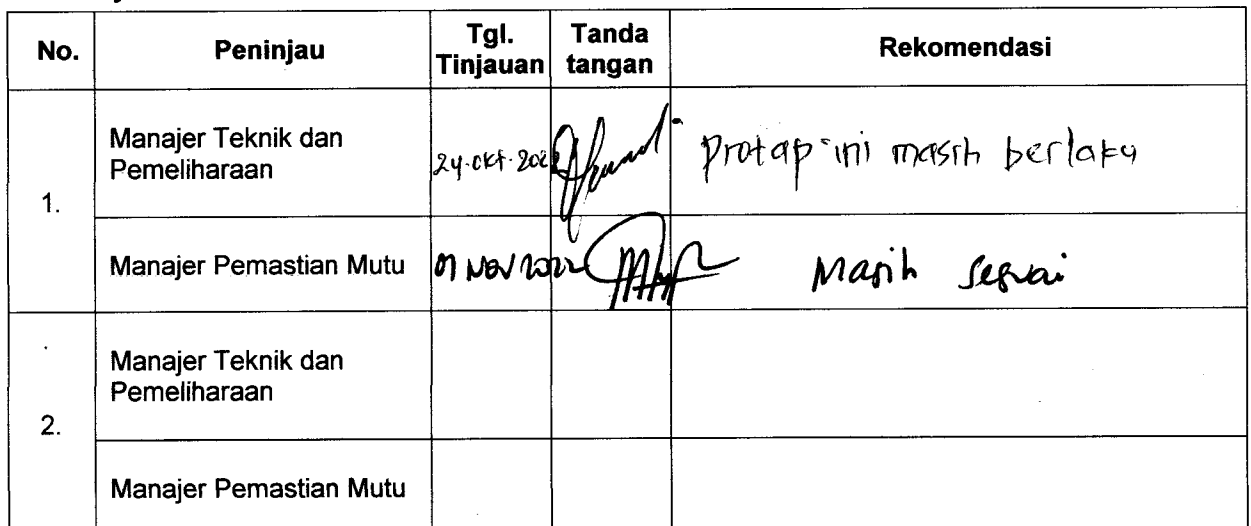 No. Peninjau Tgl. Tinjauan Tanda tangan Rekomendasi
1.
Manajer Teknik dan
Pemeliharaan
24-okt-202 protap ini masih berlaku
Manajer Pemastian Mutu Nov 2022 Masih sesuai
2.
Manajer Teknik dan
Pemeliharaan
Manajer Pemastian Mutu